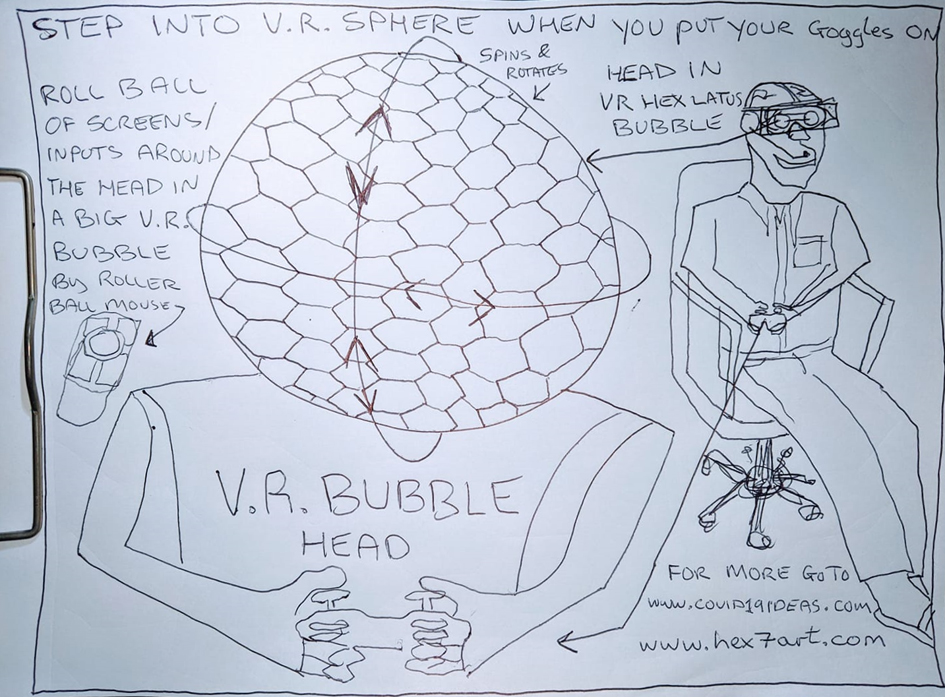 STEP INTO V.R. SPHERE WHEN YOU PUT YOUR Goggles ON
ROLL BALL
OF SCREENS/
INPUTS AROUND
THE HEAD IN
A BIG V.R.
BUBBLE
By ROLLER
BALL MOUSE
SPINS &
ROTATES
HEAD IN
VR HEX LATUS
BUBBLE
V.R. BUBBLE
HEAD
FOR MORE GO TO
www.covid19IDEAS.com
www.hex7art.com